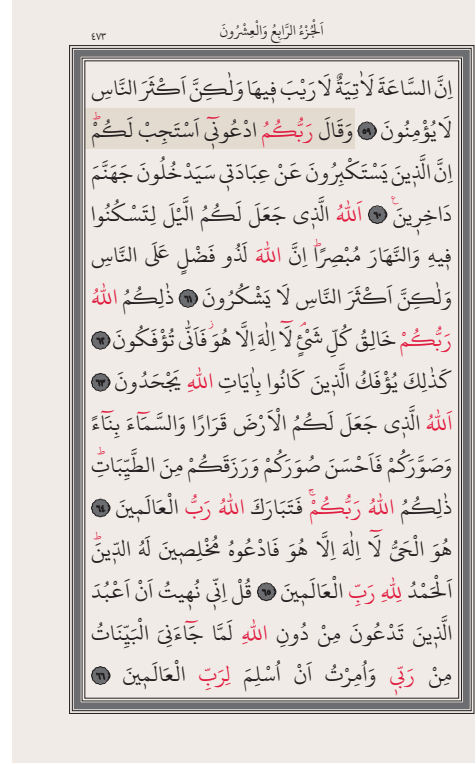 اَلْجُزْءُ الرَّابِعُ وَالْعِشْرُونَ
٤٧٣
اِنَّ السَّاعَةَ لَاٰتِيَةٌ لَا رَيْبَ فٖيهَا وَلٰكِنَّ اَكْثَرَ النَّاسِ
لَا يُؤْمِنُونَ ٥٩ وَقَالَ رَبُّكُمُ ادْعُونٖٓي اَسْتَجِبْ لَكُمْؕ
اِنَّ الَّذٖينَ يَسْتَكْبِرُونَ عَنْ عِبَادَتٖي سَيَدْخُلُونَ جَهَنَّمَ
دَاخِرٖينَ۟ ٦٠ اَللّٰهُ الَّذٖي جَعَلَ لَكُمُ الَّيْلَ لِتَسْكُنُوا
فٖيهِ وَالنَّهَارَ مُبْصِرًاؕ اِنَّ اللّٰهَ لَذُو فَضْلٍ عَلَى النَّاسِ
وَلٰكِنَّ اَكْثَرَ النَّاسِ لَا يَشْكُرُونَ ٦١ ذٰلِكُمُ اللّٰهُ
رَبُّكُمْ خَالِقُ كُلِّ شَيْءٍۢ لَٓا اِلٰهَ اِلَّا هُوَؗ فَاَنّٰى تُؤْفَكُونَ ٦٢
كَذٰلِكَ يُؤْفَكُ الَّذٖينَ كَانُوا بِاٰيَاتِ اللّٰهِ يَجْحَدُونَ ٦٣
اَللّٰهُ الَّذٖي جَعَلَ لَكُمُ الْاَرْضَ قَرَارًا وَالسَّمَٓاءَ بِنَٓاءً
وَصَوَّرَكُمْ فَاَحْسَنَ صُوَرَكُمْ وَرَزَقَكُمْ مِنَ الطَّيِّبَاتِؕ
ذٰلِكُمُ اللّٰهُ رَبُّكُمْۚ فَتَبَارَكَ اللّٰهُ رَبُّ الْعَالَمٖينَ ٦٤
هُوَ الْحَيُّ لَٓا اِلٰهَ اِلَّا هُوَ فَادْعُوهُ مُخْلِصٖينَ لَهُ الدّٖينَؕ
اَلْحَمْدُ لِلّٰهِ رَبِّ الْعَالَمٖينَ ٦٥ قُلْ اِنّٖي نُهٖيتُ اَنْ اَعْبُدَ
الَّذٖينَ تَدْعُونَ مِنْ دُونِ اللّٰهِ لَمَّا جَٓاءَنِيَ الْبَيِّنَاتُ
مِنْ رَبّٖي وَاُمِرْتُ اَنْ اُسْلِمَ لِرَبِّ الْعَالَمٖينَ ٦٦